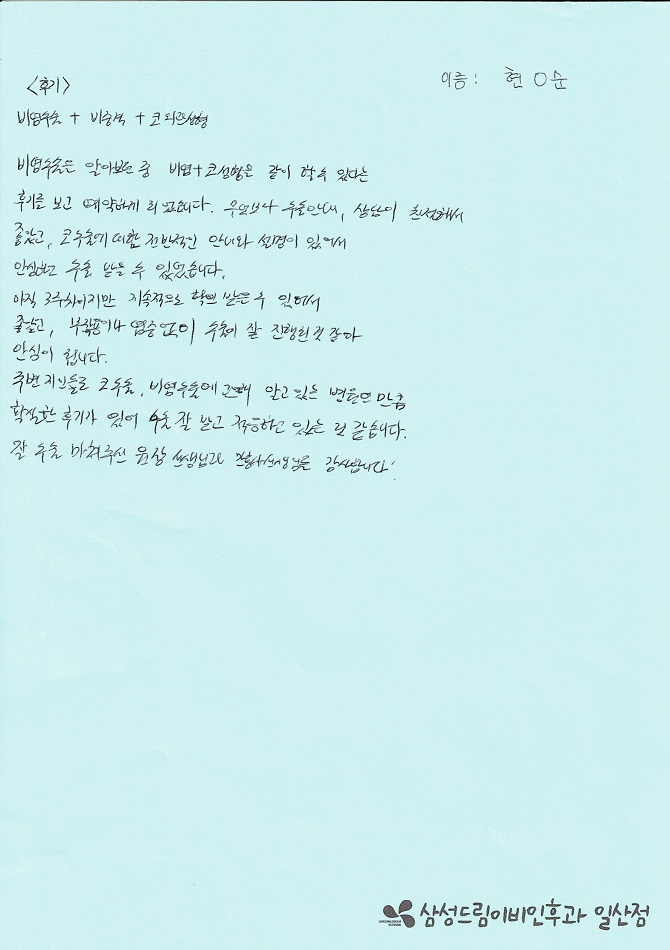 <후기>
이름: 현 O 순
비염수술 + 비중격 + 코 외부성형
비염수술은 알아보던 중 비염+코성형은 같이 할 수 있다는
후기를 보고 예약하게 되었습니다. 무엇보다 수술안내, 상담이 친절해서
좋았고, 코수술에 대한 전반적인 안내와 설명이 있어서
안심하고 수술 받을 수 있었습니다.
아직 3주차이지만 지속적으로 확인 받을 수 있어서
좋았고, 부작용이나 염증 없이 수술이 잘 진행된것 같아
안심이 됩니다.
주변 지인들로 코수술, 비염수술에 알고 있는 병원인 만큼
확실한 후기가 있어 수술 잘 받고 적응하고 있는 것 같습니다.
잘 수술 마쳐주신 원장 선생님과 간호사선생님들 감사합니다!
삼성드림이비인후과 일산점